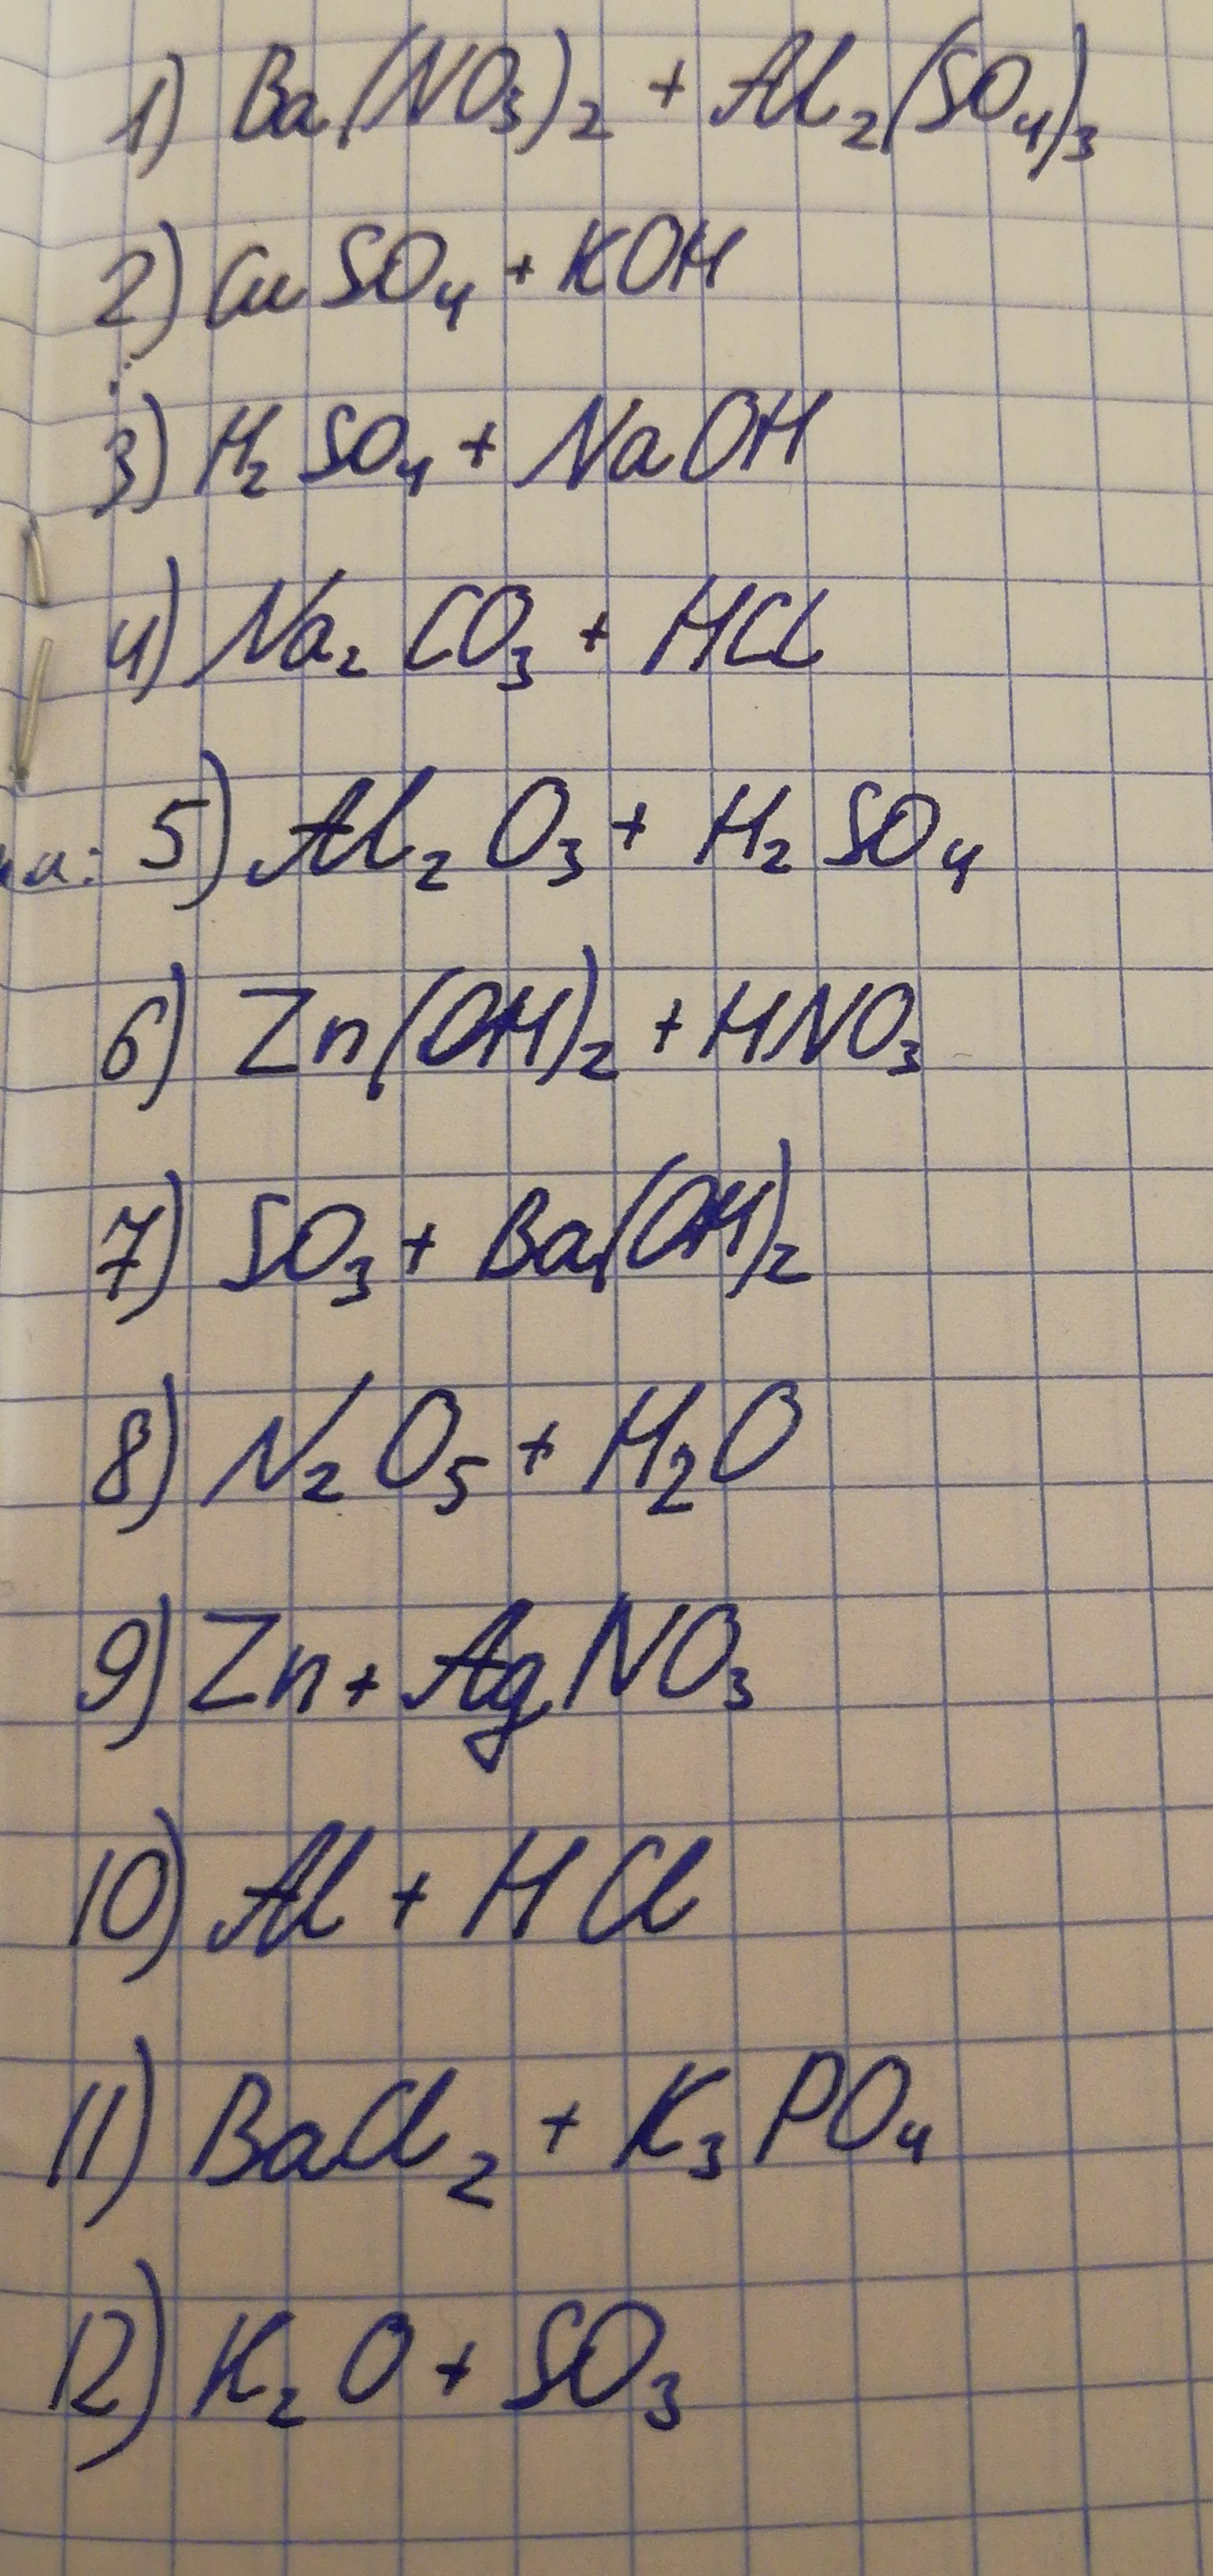 1) Ba(NO₃)₂ + Al₂(SO₄)₃
2) CuSO₄ + KOH
3) H₂SO₄ + NaOH
4) Na₂CO₃ + HCl
5) Al₂O₃ + H₂SO₄
6) Zn(OH)₂ + HNO₃
7) SO₃ + Ba(OH)₂
8) N₂O₅ + H₂O
9) Zn + AgNO₃
10) Al + HCl
11) BaCl₂ + K₃PO₄
12) K₂O + SO₃